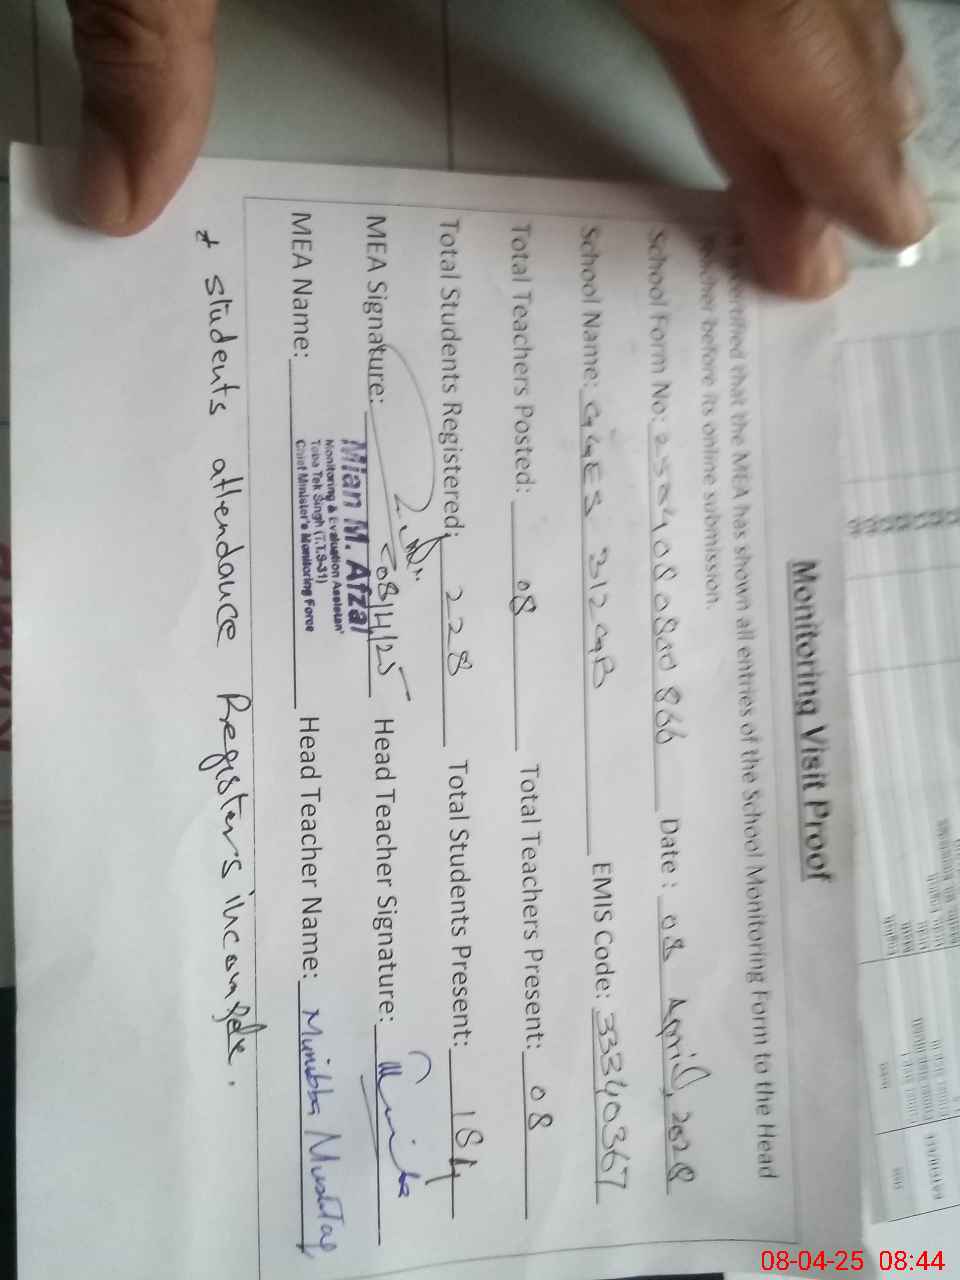 Monitoring Visit Proof
certified that the MEA has shown all entries of the School Monitoring Form to the Head
Teacher before its online submission.
School Form No: 2554080800866 Date: 08 April, 2025
School Name: GGES 312 GB EMIS Code: 33340367
Total Teachers Posted: 08 Total Teachers Present: 08
Total Students Registered: 228 Total Students Present: 184
MEA Signature: 08/4/25 Head Teacher Signature:
MEA Name: Head Teacher Name: Munibba Mushtaq
Mian M. Afzal
Monitoring & Evaluation Assistan
Toba Tek Singh (T.T.S-31)
Chief Minister's Monitoring Force
* students attendance Registers incomplete.
08-04-25 08:44